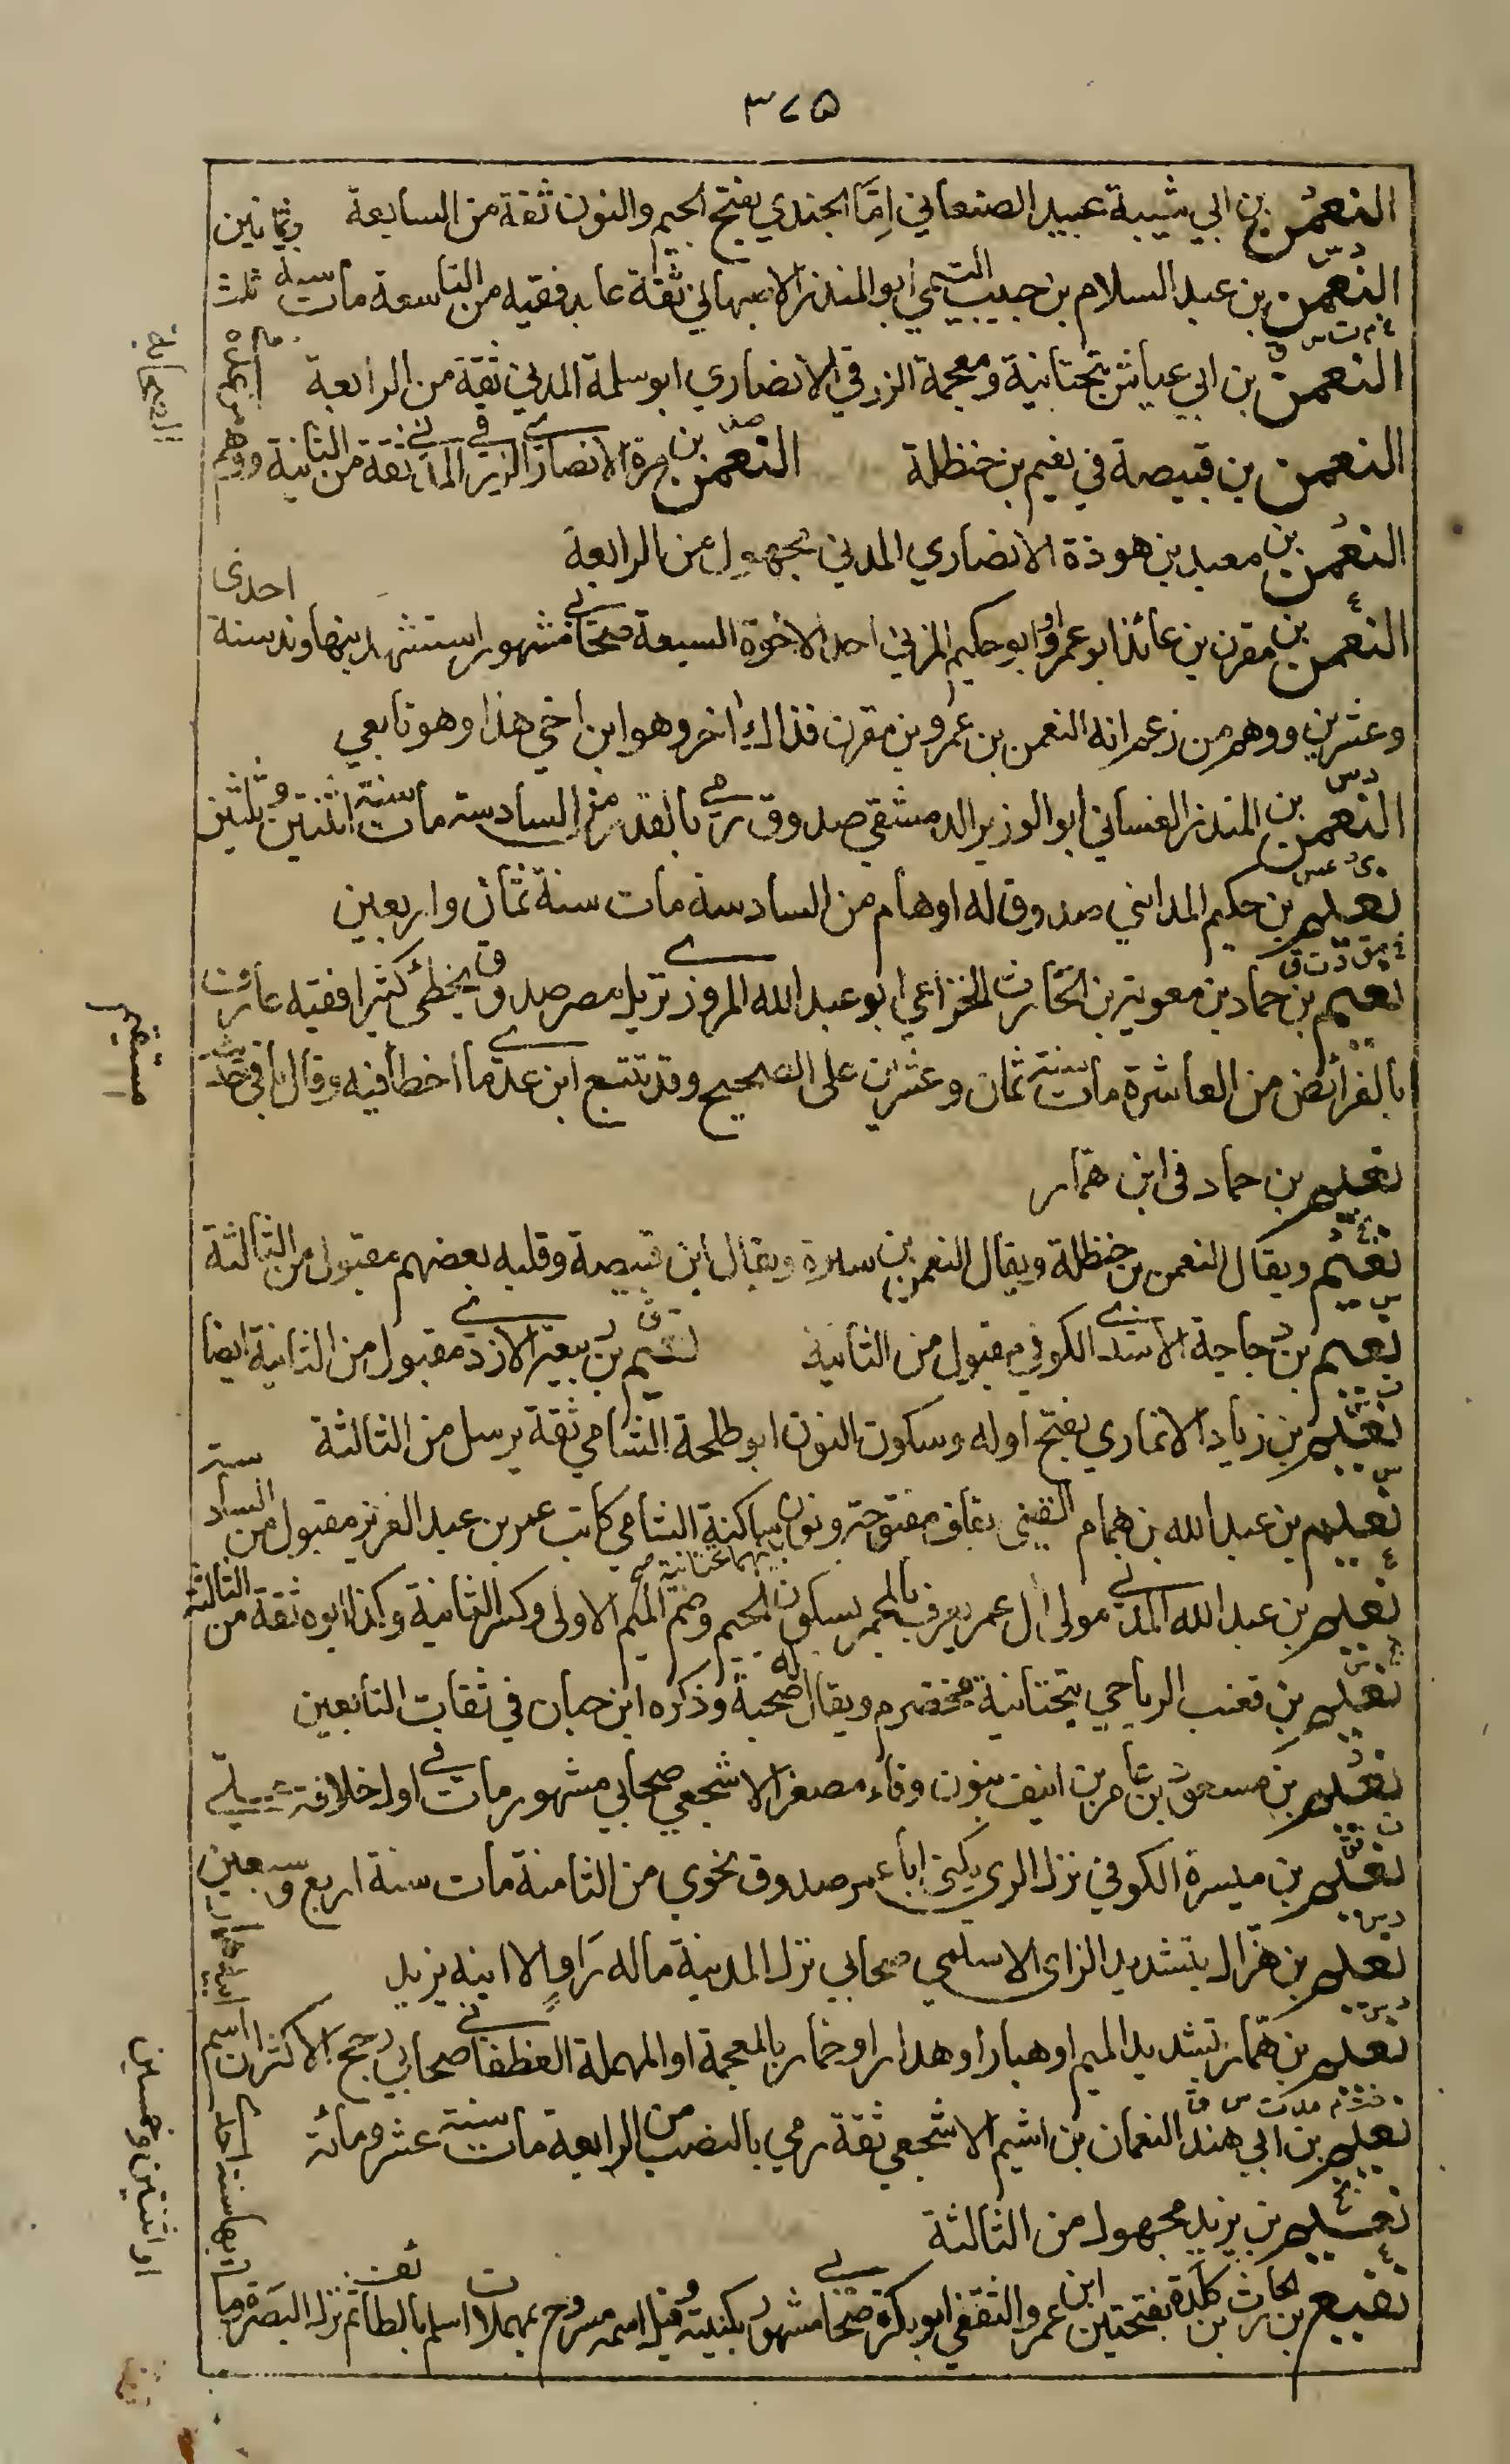 ٣٧٥
النعمن بن ابي شيبة عبيد الصنعاني اما الجندي بفتح الجيم والنون ثقة من السابعة
النعمن بن عبد السلام بن حبيب التيمي ابو المنذر الاصبهاني ثقة عابد فقيه من التاسعة مات سنة ثلث وثمانين
النعمن بن ابي عياش بتحتانية ومعجمة الزرقي الانصاري ابو سلمة المدني ثقة من الرابعة
النعمن بن قبيصة في نعيم بن حنظلة النعمن بن مرة الانصاري الزرقي المدني ثقة من الثانية ووهم من عده في الصحابة
النعمن بن معبد بن هوذة الانصاري المدني مجهول من الرابعة
النعمن بن مقرن بن عائذ ابو عمرو او ابو حكيم المزني احد الاخوة السبعة صحابي مشهور استشهد بنهاوند سنة احدى
وعشرين ووهم من زعم انه النعمن بن عمرو بن مقرن فذاك اخر وهو ابن اخي هذا وهو تابعي
النعمن بن المنذر الغساني ابو الوزير الدمشقي صدوق رمي بالقدر من السادسة مات سنة اثنتين وثلثين
نعيم بن حكيم المدائني صدوق له اوهام من السادسة مات سنة ثمان واربعين
نعيم بن حماد بن معوية بن الحارث الخزاعي ابو عبد الله المروزي نزيل مصر صدوق يخطئ كثيرا فقيه عارف
بالفرائض من العاشرة مات سنة ثمان وعشرين على الصحيح وقد تتبع ابن عدي ما اخطا فيه وقال باقي حديثه مستقيم
نعيم بن حماد في ابن همار
نعيم ويقال النعمن بن حنظلة ويقال النعمن بن سبرة ويقال ابن قبيصة وقلبه بعضهم مقبول من الثالثة
نعيم بن دجاجة الاسدي الكوفي مقبول من الثانية نعيم بن ربيعة الازدي مقبول من الثانية ايضا
نعيم بن زياد الانماري بفتح اوله وسكون النون ابو طلحة الشامي ثقة يرسل من الثالثة
نعيم بن عبد الله بن همام القيني بقاف مفتوحة ونون بينهما تحتانية ساكنة الشامي كاتب عمر بن عبد العزيز مقبول من السادسة
نعيم بن عبد الله المدني مولى ال عمر يعرف بالمجمر بسكون الجيم وضم الميم الاولى وكسر الثانية وكذا ابوه ثقة من الثالثة
نعيم بن قعنب الرياحي بتحتانية مخضرم ويقال له صحبة وذكره ابن حبان في ثقات التابعين
نعيم بن مسعود بن عامر بن انيف بنون وفاء مصغر الاشجعي صحابي مشهور مات في اول خلافة علي
نعيم بن ميسرة الكوفي نزل الري يكنى ابا عمر صدوق نحوي من الثامنة مات سنة اربع وسبعين
نعيم بن هزال بتشديد الزاى الاسلمي صحابي نزل المدينة ماله راو الا ابنه يزيد
نعيم بن همار بتشديد الميم او هبار او هدار او خمار بالمعجمة او المهملة الغطفاني صحابي رجح الاكثر ان اسم ابيه همار
نعيم بن ابي هند النعمان بن اشيم الاشجعي ثقة رمي بالنصب من الرابعة مات سنة عشر ومائة
نعيم بن يزيد مجهول من الثالثة
نفيع بن الحارث بن كلدة بفتحتين ابن عمرو الثقفي ابو بكرة صحابي مشهور بكنيته وقيل اسمه مسروح بمهملات اسلم بالطائف ثم نزل البصرة ومات بها سنة احدى
او اثنتين وخمسين